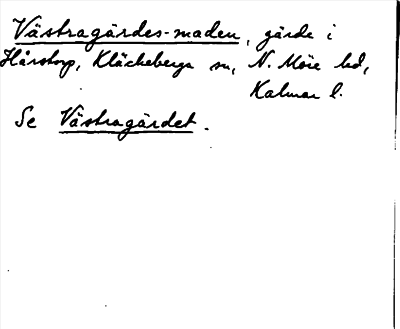 Västragärdes-maden, gärde i
Hårstorp, Kläckeberga sn, N. Möre hd,
Kalmar l.
Se Västragärdet.